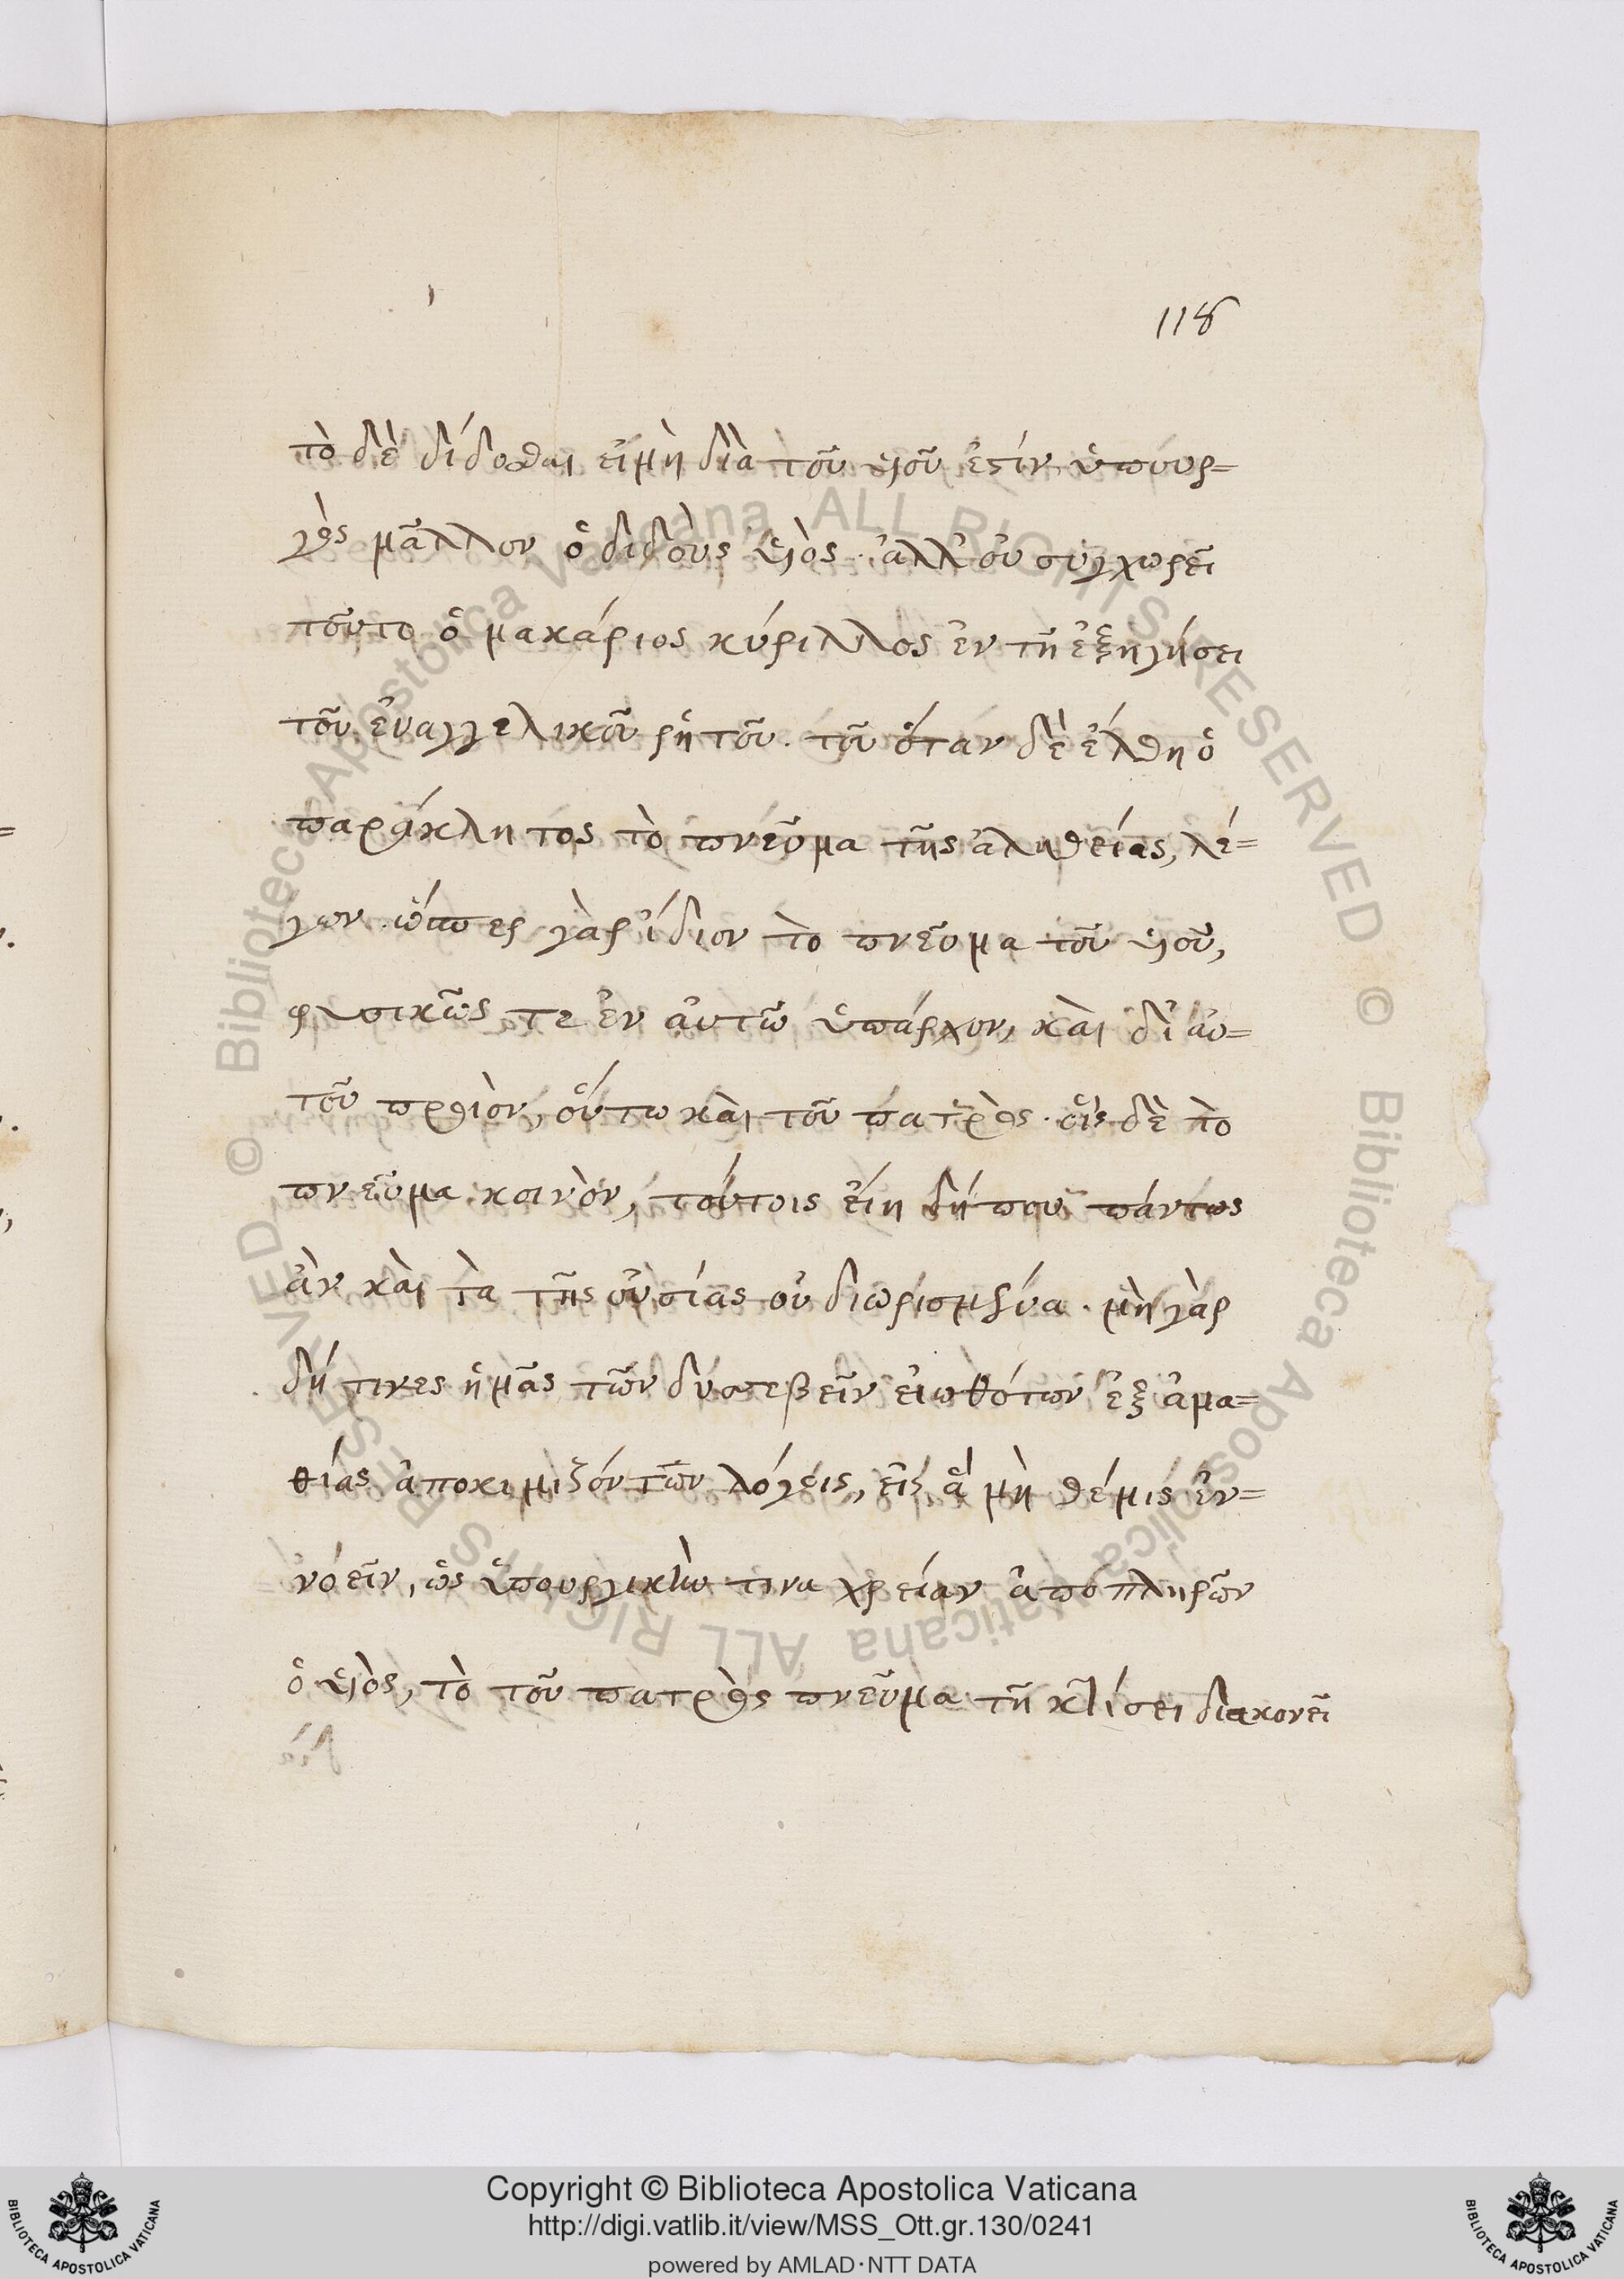 118
τὸ δὲ δίδοσθαι εἰμὴ διὰ τοῦ υἱοῦ ἐστίν, ὑπουρ=
γὸς μᾶλλον ὁ διδοὺς υἱός· ἀλλ' οὐ συγχωρεῖ
τοῦτο ὁ μακάριος κύριλλος ἐν τῆ ἐξηγήσει
τοῦ ἐυαγγελικοῦ ῥητοῦ. τοῦ ὅταν δὲ ἔλθη ὁ
παράκλητος τὸ πνεῦμα τῆς ἀληθείας, λέ=
γων. ὥσπερ γὰρ ἴδιον τὸ πνεῦμα τοῦ υἱοῦ,
φυσικῶς τε ἐν ἀυτῶ ὑπάρχον, καὶ δι' ἀυ=
τοῦ προϊὸν, οὕτω καὶ τοῦ πατρὸς· οἷς δὲ τὸ
πνεῦμα κοινὸν, τούτοις εἴη δήπου πάντως
ἂν καὶ τὰ τῆς οὐσίας οὐ διωρισμένα. μὴ γὰρ
δή τινες ἡμᾶς τῶν δυσσεβεῖν εἰωθότων ἐξ ἀμα=
θίας ἀποκομιζόντων λόγοις, εἰς ἃ μὴ θέμις ἐν=
νοεῖν, ὡς ὑπουργικὴν τινα χρείαν ἀποπληρῶν
ὁ υἱὸς, τὸ τοῦ πατρὸς πνεῦμα τῆ κτίσει διακονεῖ
Copyright © Biblioteca Apostolica Vaticana
http://digi.vatlib.it/view/MSS_Ott.gr.130/0241
powered by AMLAD·NTT DATA
BIBLIOTECA APOSTOLICA VATICANA
BIBLIOTECA APOSTOLICA VATICANA
© Biblioteca Apostolica Vaticana ALL RIGHTS RESERVED © Biblioteca Apostolica Vaticana ALL RIGHTS RESERVED